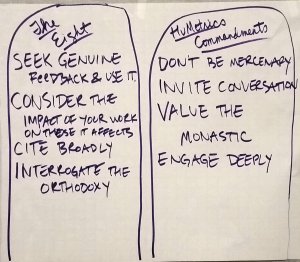 The Eight
SEEK GENUINE
FEEDBACK & USE IT
CONSIDER THE
IMPACT OF YOUR WORK
ON THOSE IT AFFECTS
CITE BROADLY
INTERROGATE THE
ORTHODOXY
HuMetrics
Commandments
DON'T BE MERCENARY
INVITE CONVERSATION
VALUE THE
MONASTIC
ENGAGE DEEPLY